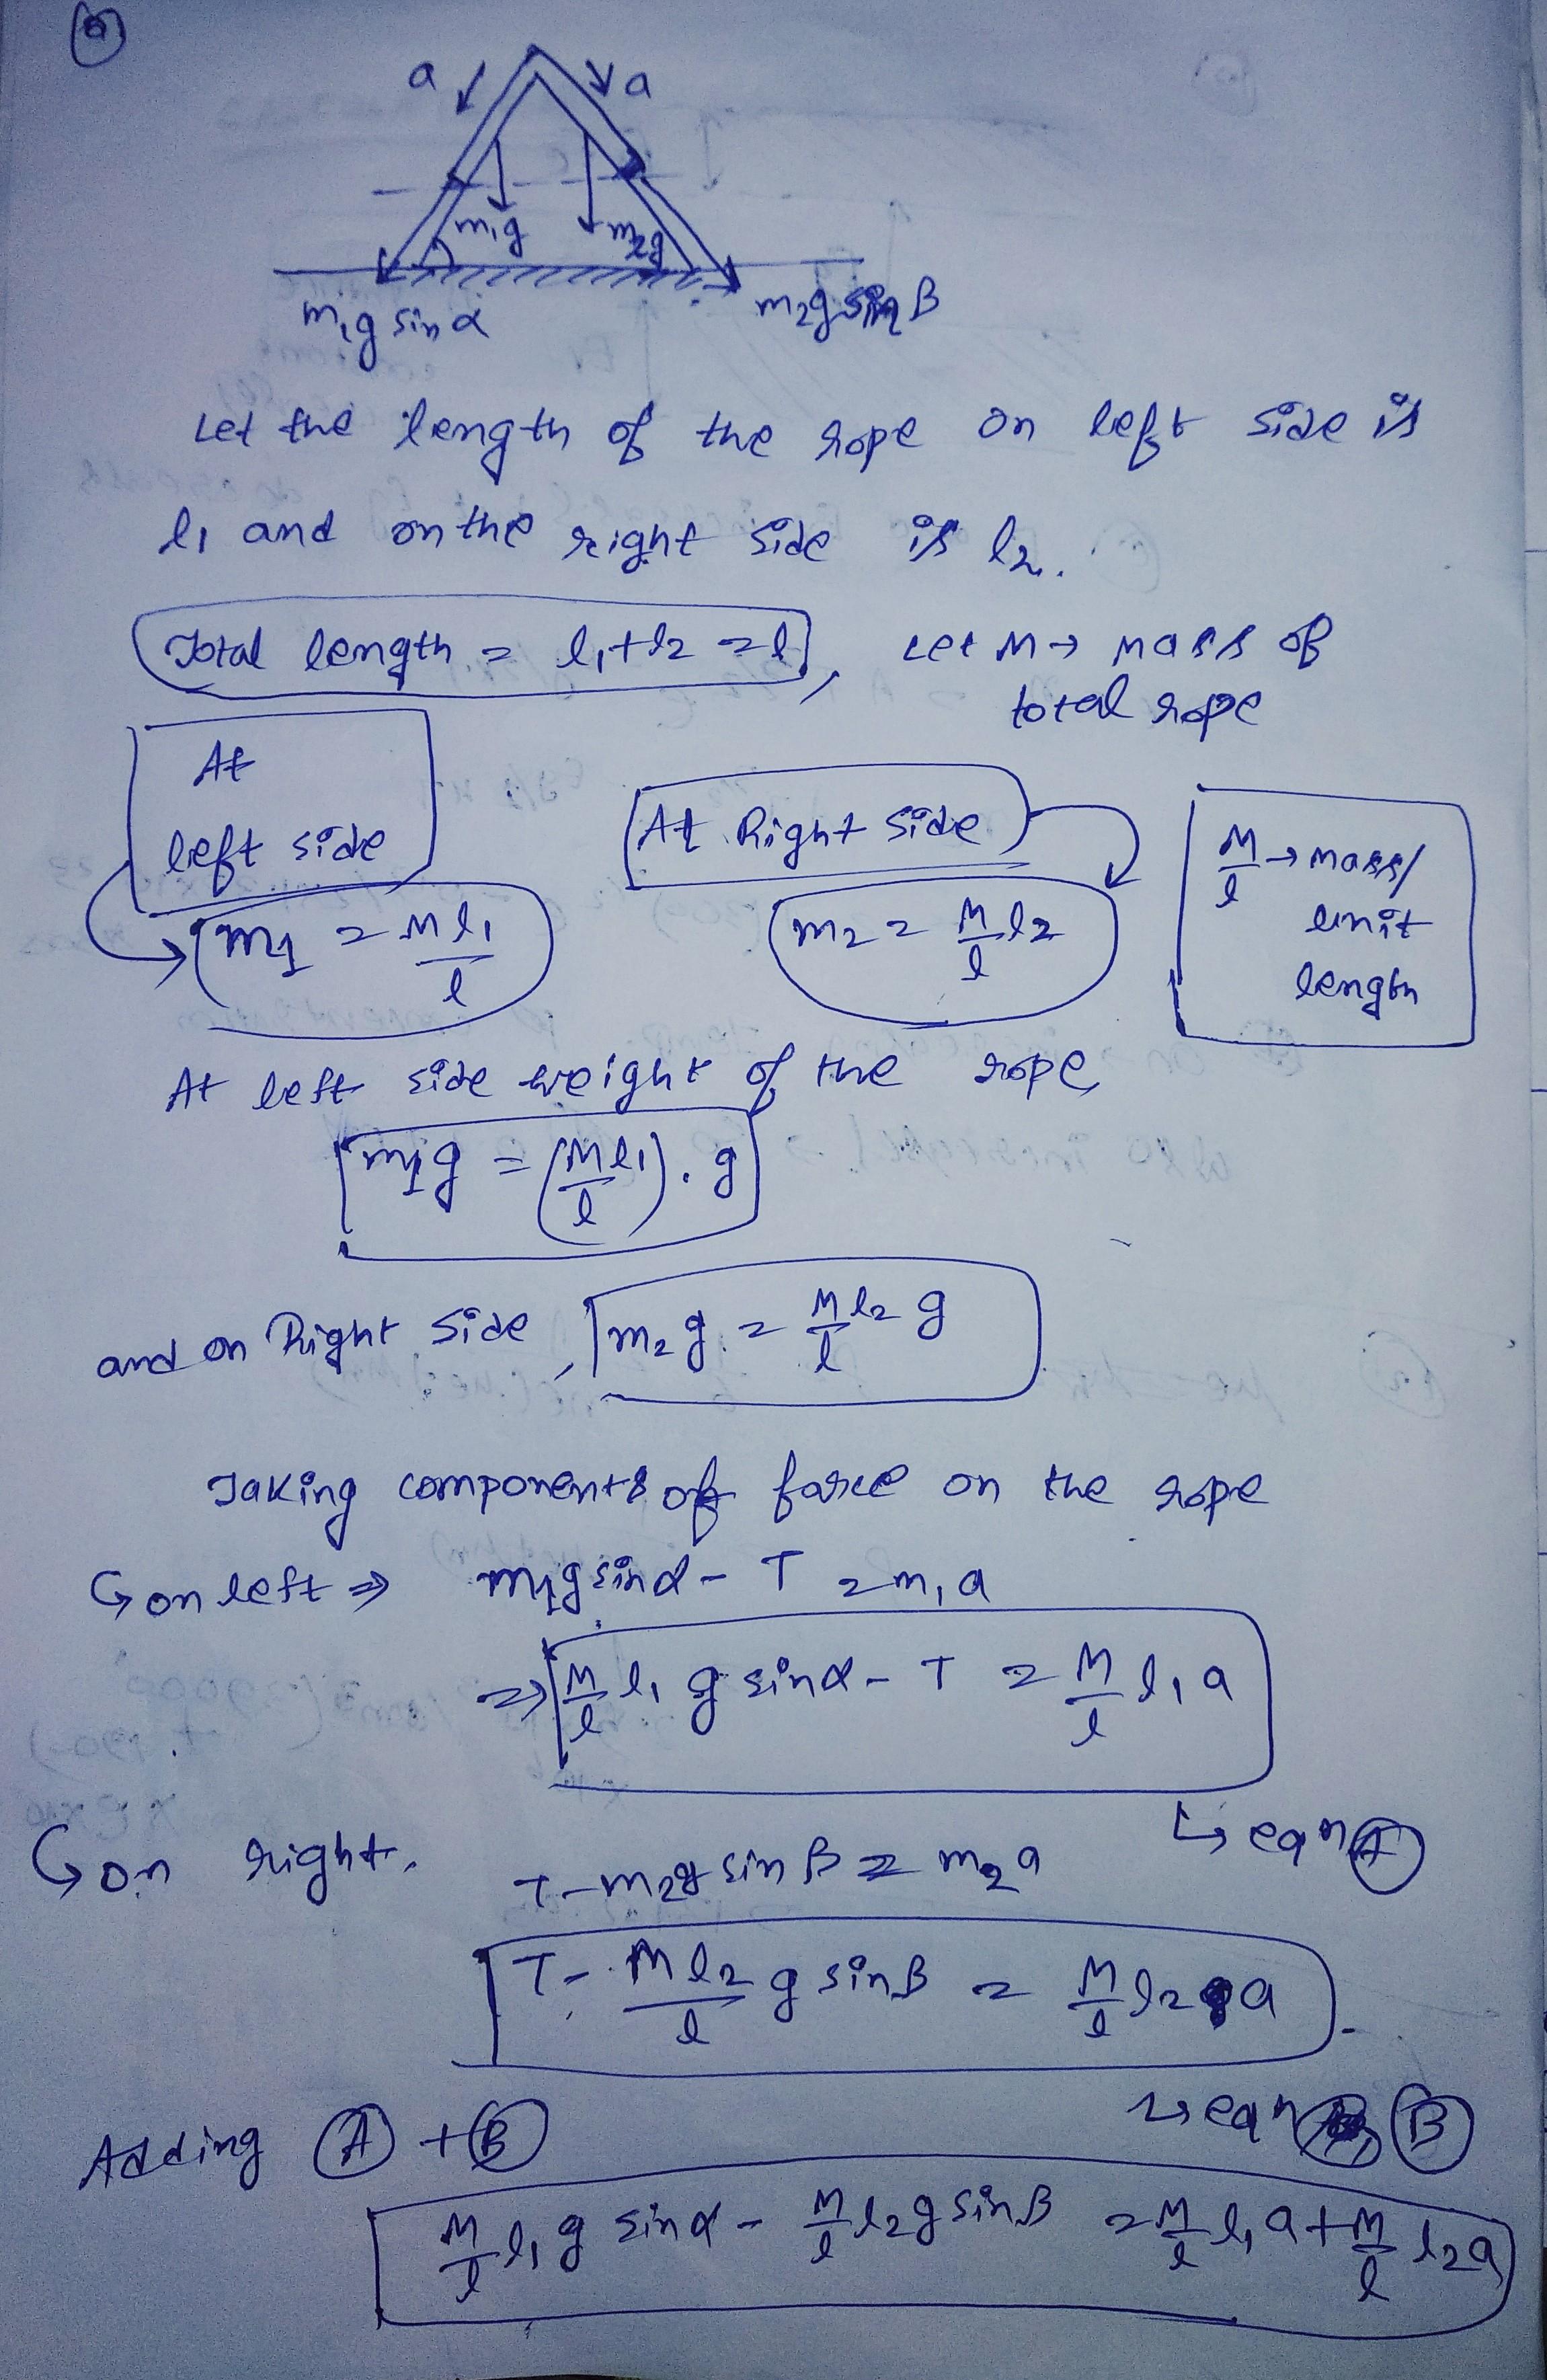 a
a
a
m₁g
m₂g
m₁g sin α
m₂g sin β
Let the length of the rope on left side is
l₁ and on the right side is l₂.
Total length = l₁+l₂ = l, Let M → mass of
total rope
At
left side
At Right side
M/l → mass/
unit
length
m₁ = Ml₁/l
m₂ = M/l l₂
At left side weight of the rope,
m₁g = (Ml₁/l).g
and on Right side, m₂g = M/l l₂ g
Taking components of force on the rope
↳ on left ⇒ m₁g sinα - T = m₁a
⇒ M/l l₁ g sinα - T = M/l l₁ a
↳ eqn A
↳ on right. T - m₂g sin β = m₂a
T - Ml₂/l g sin β = M/l l₂ a
↳ eqn B
Adding A + B
M/l l₁ g sin α - M/l l₂ g sin β = M/l l₁ a + M/l l₂ a